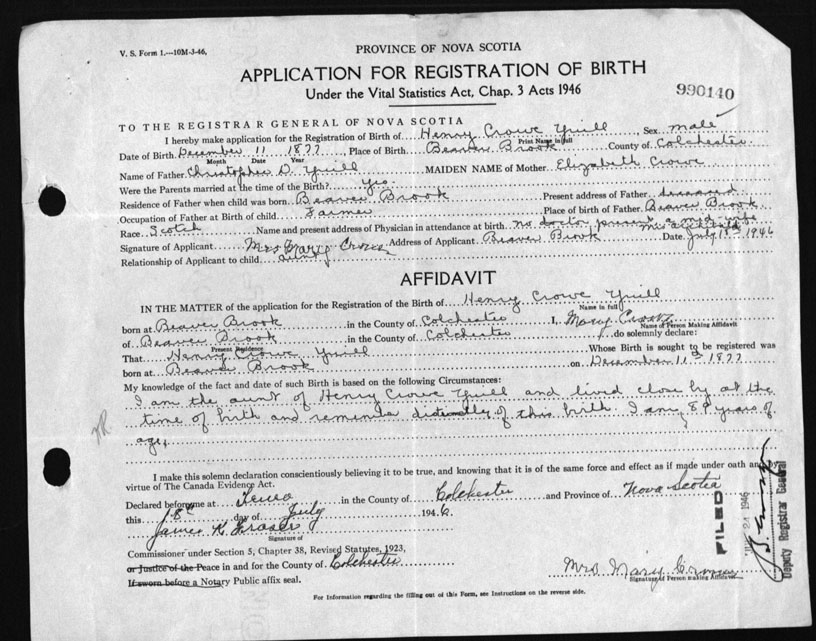 V. S. Form 1.—10M-3-46.
PROVINCE OF NOVA SCOTIA
APPLICATION FOR REGISTRATION OF BIRTH
Under the Vital Statistics Act, Chap. 3 Acts 1946
990140
TO THE REGISTRAR GENERAL OF NOVA SCOTIA
I hereby make application for the Registration of Birth of Henry Crowe Yuill Sex male
Print Name in full
Date of Birth December 11 1877, Place of Birth Beaver Brook County of Colchester
Month Date Year
Name of Father Christopher D. Yuill MAIDEN NAME of Mother Elizabeth Crowe
Were the Parents married at the time of the Birth? Yes
Residence of Father when child was born Beaver Brook Present address of Father deceased
Occupation of Father at Birth of child Farmer Place of birth of Father Beaver Brook
Race Scotch Name and present address of Physician in attendance at birth no doctor present a mid wife
Signature of Applicant Mrs Mary Crowe Address of Applicant Beaver Brook Date July 18th 1946
Relationship of Applicant to child aunt
AFFIDAVIT
IN THE MATTER of the application for the Registration of the Birth of Henry Crowe Yuill
Name in full
born at Beaver Brook in the County of Colchester I, Mary Crowe
Name of Person Making Affidavit
of Beaver Brook in the County of Colchester do solemnly declare:
Present Residence
That Henry Crowe Yuill Whose Birth is sought to be registered was
born at Beaver Brook on December 11th 1877
My knowledge of the fact and date of such Birth is based on the following Circumstances:
I am the aunt of Henry Crowe Yuill and lived close by at the
time of birth and of this birth. I am 89 years of
age.
I make this solemn declaration conscientiously believing it to be true, and knowing that it is of the same force and effect as if made under oath and by
virtue of The Canada Evidence Act.
Declared before me at Truro in the County of Colchester and Province of Nova Scotia
this 18th day of July 1946.
James K. Fraser
Signature of
Commissioner under Section 5, Chapter 38, Revised Statutes, 1923,
or Justice of the Peace in and for the County of Colchester
If sworn before a Notary Public affix seal.
Mrs Mary Crowe
Signature of Person making Affidavit
For Information regarding the filling out of this Form, see Instructions on the reverse side.
FILED
24 1946
Deputy Registrar General